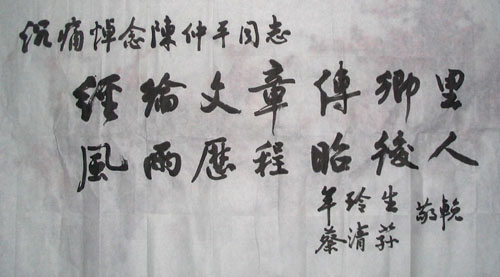 沉痛悼念陳仲平同志
經綸文章傳鄉里
風雨歷程昭後人
年玲生
蔡清
敬輓